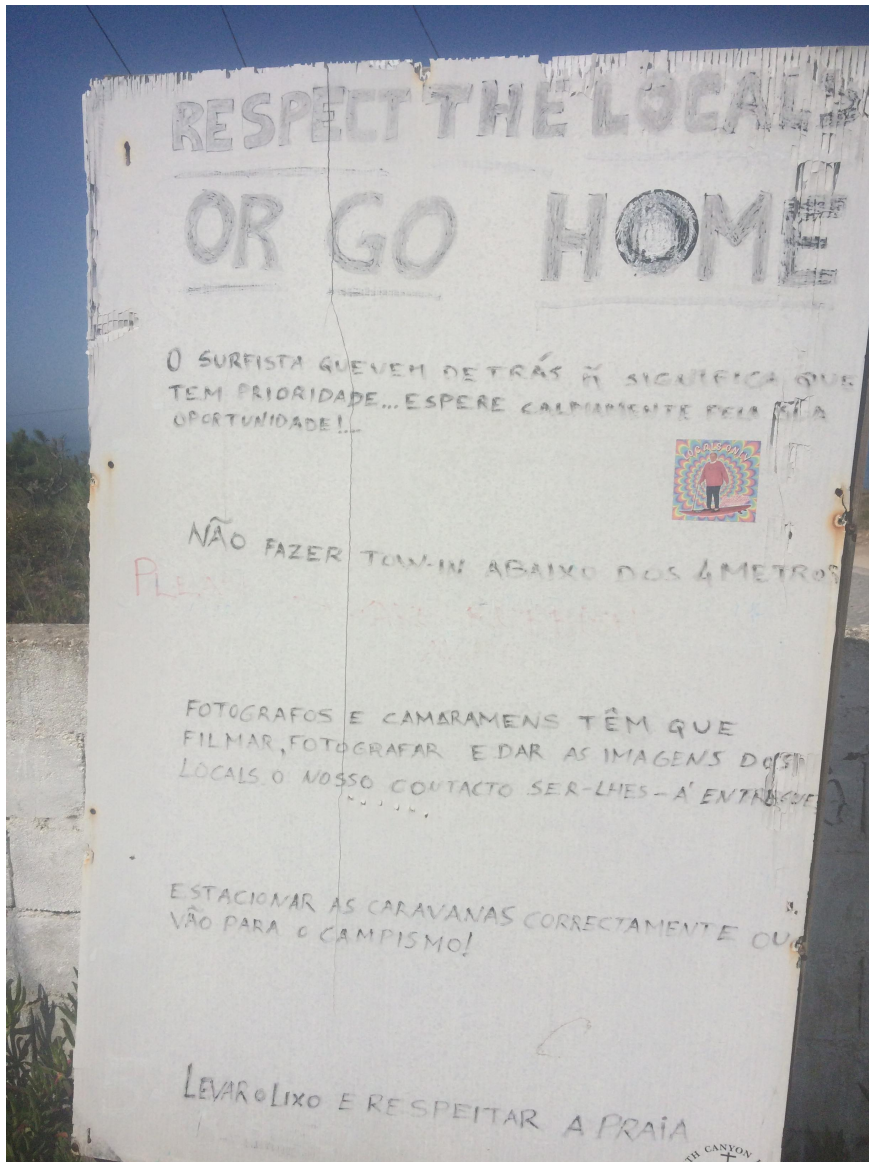 RESPECT THE LOCALS
OR GO HOME
O SURFISTA QUE VEM DE TRÁS Ñ SIGNIFICA QUE
TEM PRIORIDADE... ESPERE CALMAMENTE PELA SUA
OPORTUNIDADE!...
NÃO FAZER TOW-IN ABAIXO DOS 4 METROS
FOTOGRAFOS E CAMARAMENS TÊM QUE
FILMAR, FOTOGRAFAR E DAR AS IMAGENS DOS
LOCALS. O NOSSO CONTACTO SER-LHES-Á ENTREGUE
ESTACIONAR AS CARAVANAS CORRECTAMENTE OU
VÃO PARA O CAMPISMO!
LEVAR O LIXO E RESPEITAR A PRAIA
TH CANYON